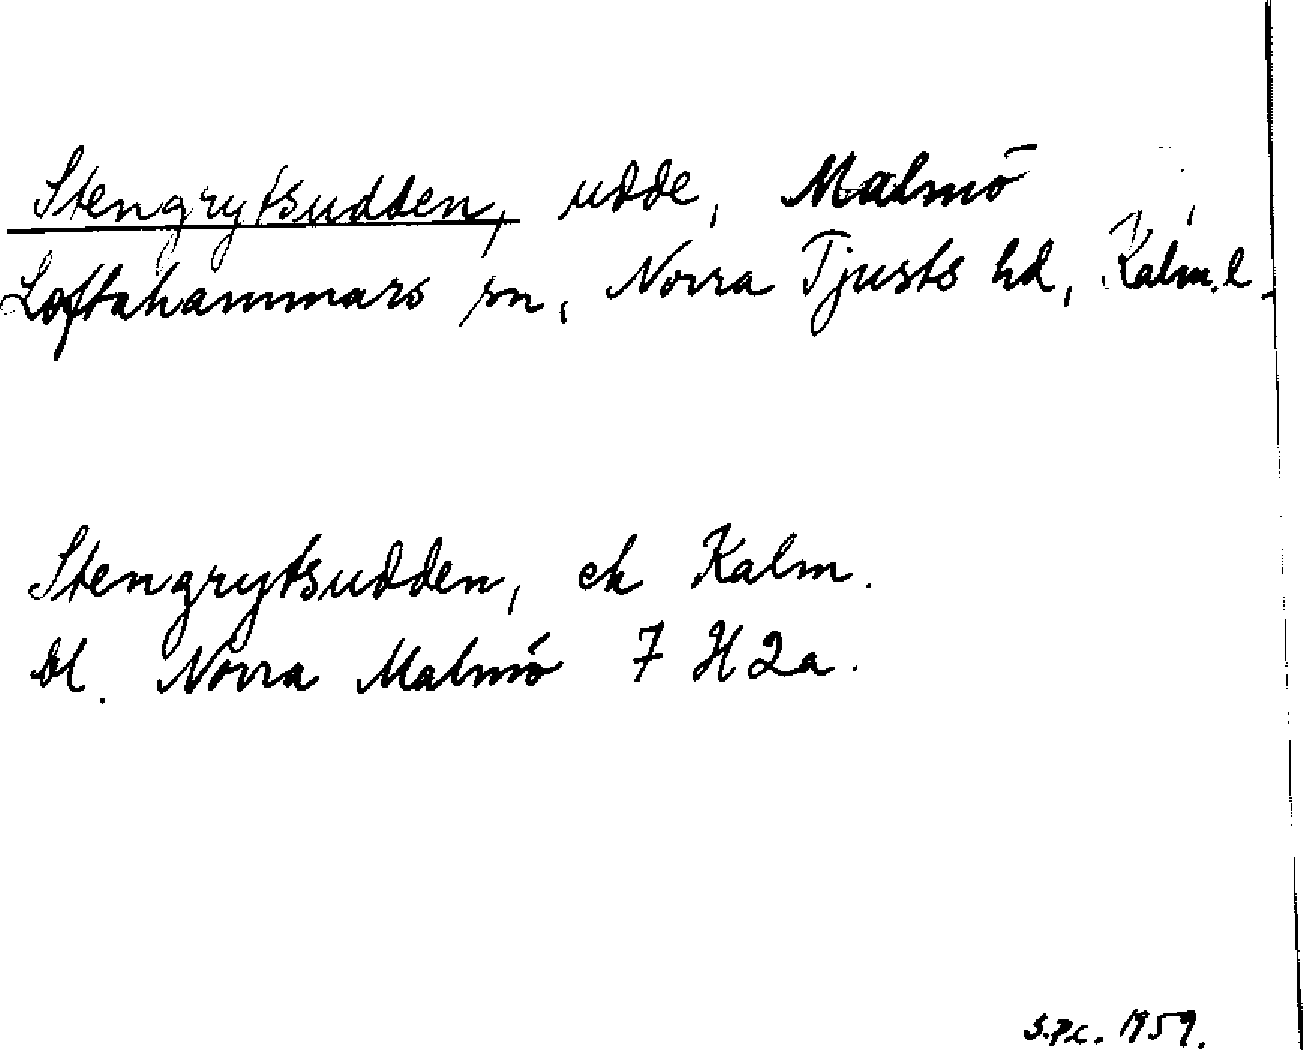 Stengrytsudden, udde, Malmö
Loftahammars sn, Norra Tjusts hd, Kalm.l.
Stengrytsudden, ek Kalm.
bl. Norra Malmö 7 H 2a.
S.P.C. 1959.